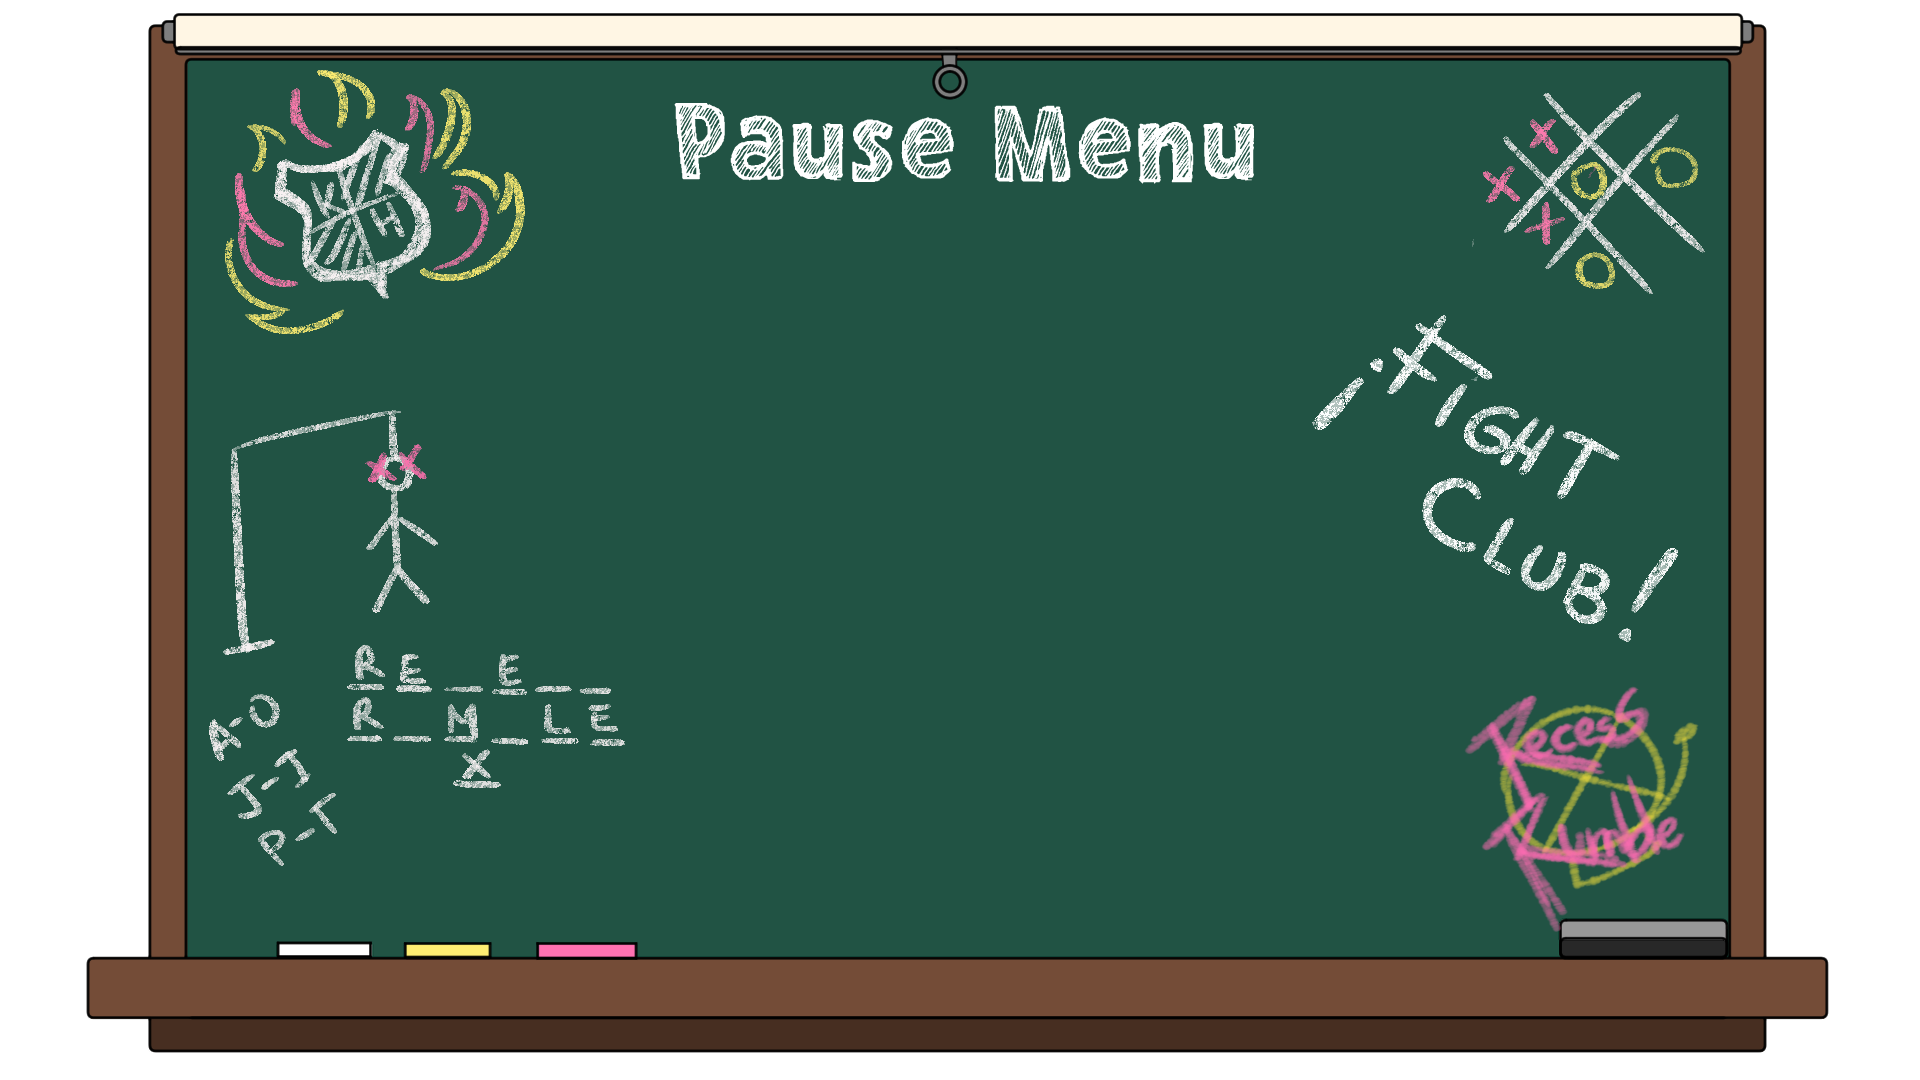 Pause Menu
K
H
X
O
X
O
X
O
¡FIGHT
CLUB!
R E _ E _ _
R _ M _ L E
X
A-O
J-J
P-T
Recess
Rumble